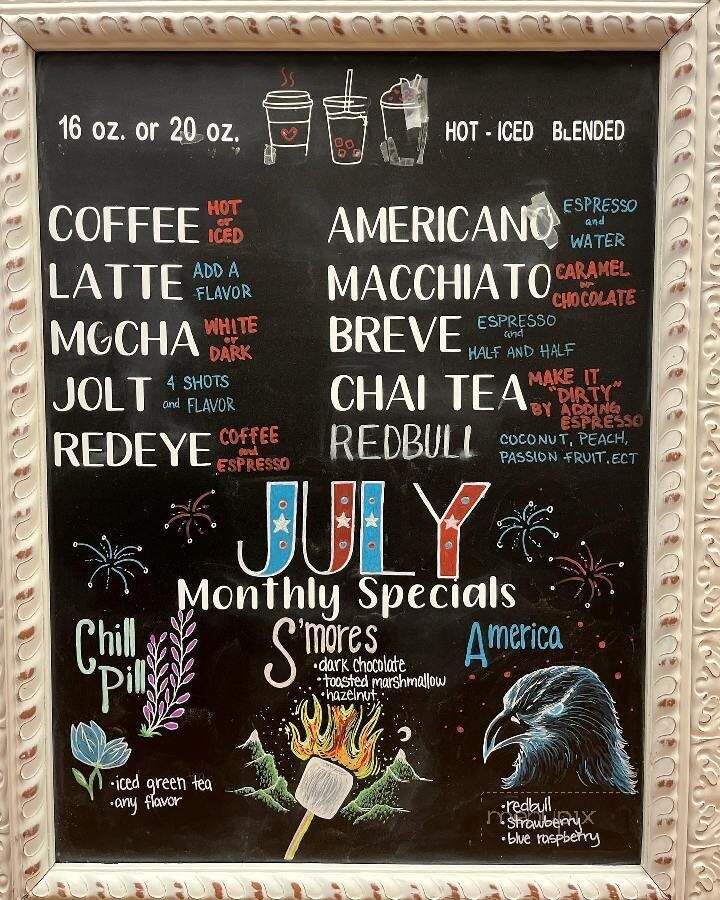 16 oz. or 20 oz.
HOT - ICED BLENDED
COFFEE HOT or ICED
LATTE ADD A FLAVOR
MOCHA WHITE or DARK
JOLT 4 SHOTS and FLAVOR
REDEYE COFFEE and ESPRESSO
AMERICANO ESPRESSO and WATER
MACCHIATO CARAMEL or CHOCOLATE
BREVE ESPRESSO and HALF AND HALF
CHAI TEA MAKE IT "DIRTY" BY ADDING ESPRESSO
REDBULL COCONUT, PEACH, PASSION FRUIT, ECT
JULY
Monthly Specials
Chill
Pill
•iced green tea
•any flavor
S'mores
•dark chocolate
•toasted marshmallow
•hazelnut
America
•redbull
•strawberry
•blue raspberry